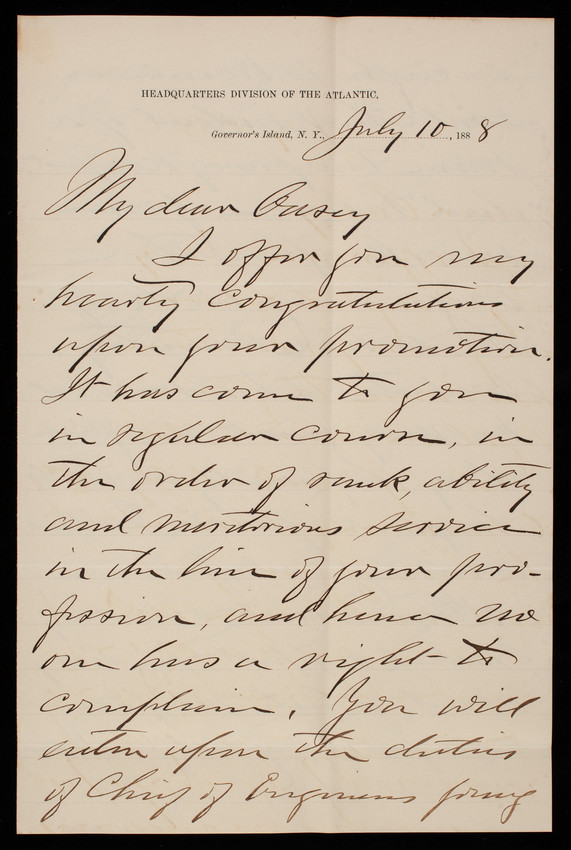 HEADQUARTERS DIVISION OF THE ATLANTIC.
Governor's Island, N. Y., July 10, 1888
My dear Casey
I offer you my
hearty congratulations
upon your promotion.
It has come to you
in regular course, in
the order of rank, ability
and meritorious service
in the line of your pro-
fession, and hence no
one has a right to
complain. You will
enter upon the duties
of Chief of Engineers young